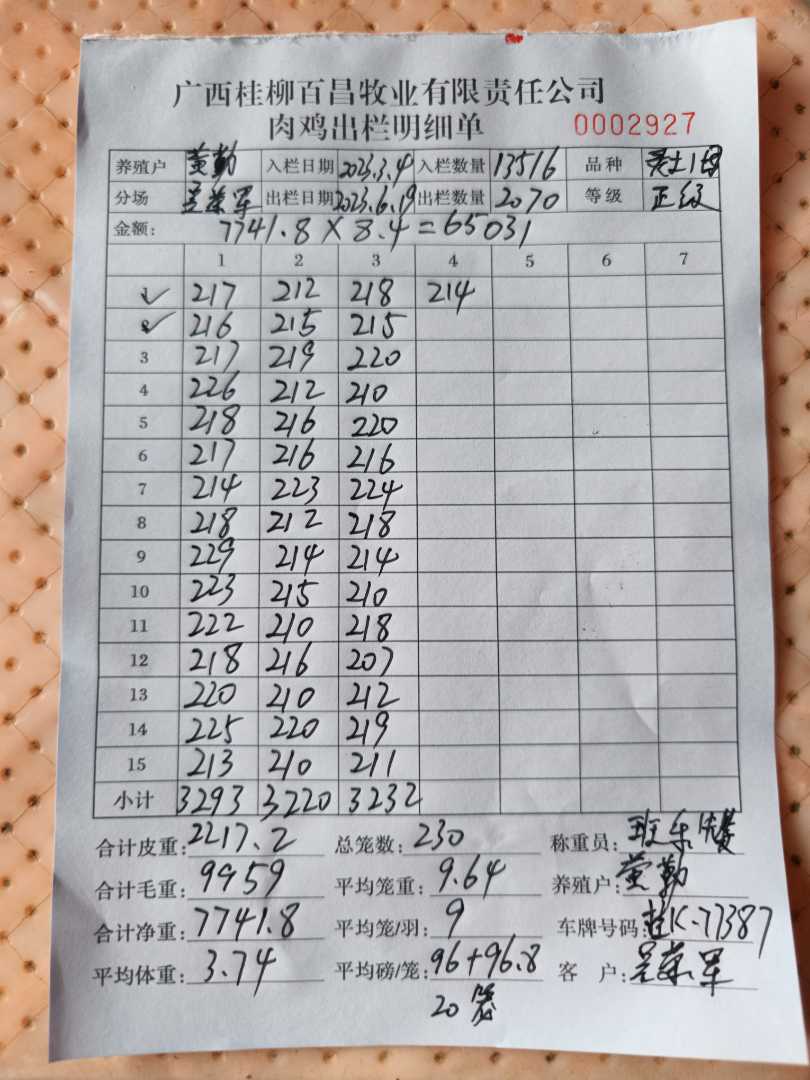 广西桂柳百昌牧业有限责任公司
肉鸡出栏明细单 0002927
养殖户 黄勤 入栏日期 2023.3.4 入栏数量 13516 品种
分场 出栏日期 2023.6.19 出栏数量 2070 等级 正级
金额: 7741.8 × 8.4 = 65031
1 2 3 4 5 6 7
1 217 212 218 214
2 216 215 215
3 217 219 220
4 226 212 210
5 218 216 220
6 217 216 216
7 214 223 224
8 218 212 218
9 229 214 214
10 223 215 210
11 222 210 218
12 218 216 207
13 220 210 212
14 225 220 219
15 213 210 211
小计 3293 3220 3232
合计皮重: 2217.2 总笼数: 230 称重员:
合计毛重: 9959 平均笼重: 9.64 养殖户: 黄勤
合计净重: 7741.8 平均笼/羽: 9 车牌号码: 桂K-77387
平均体重: 3.74 平均磅/笼: 96+96.8 客 户:
20